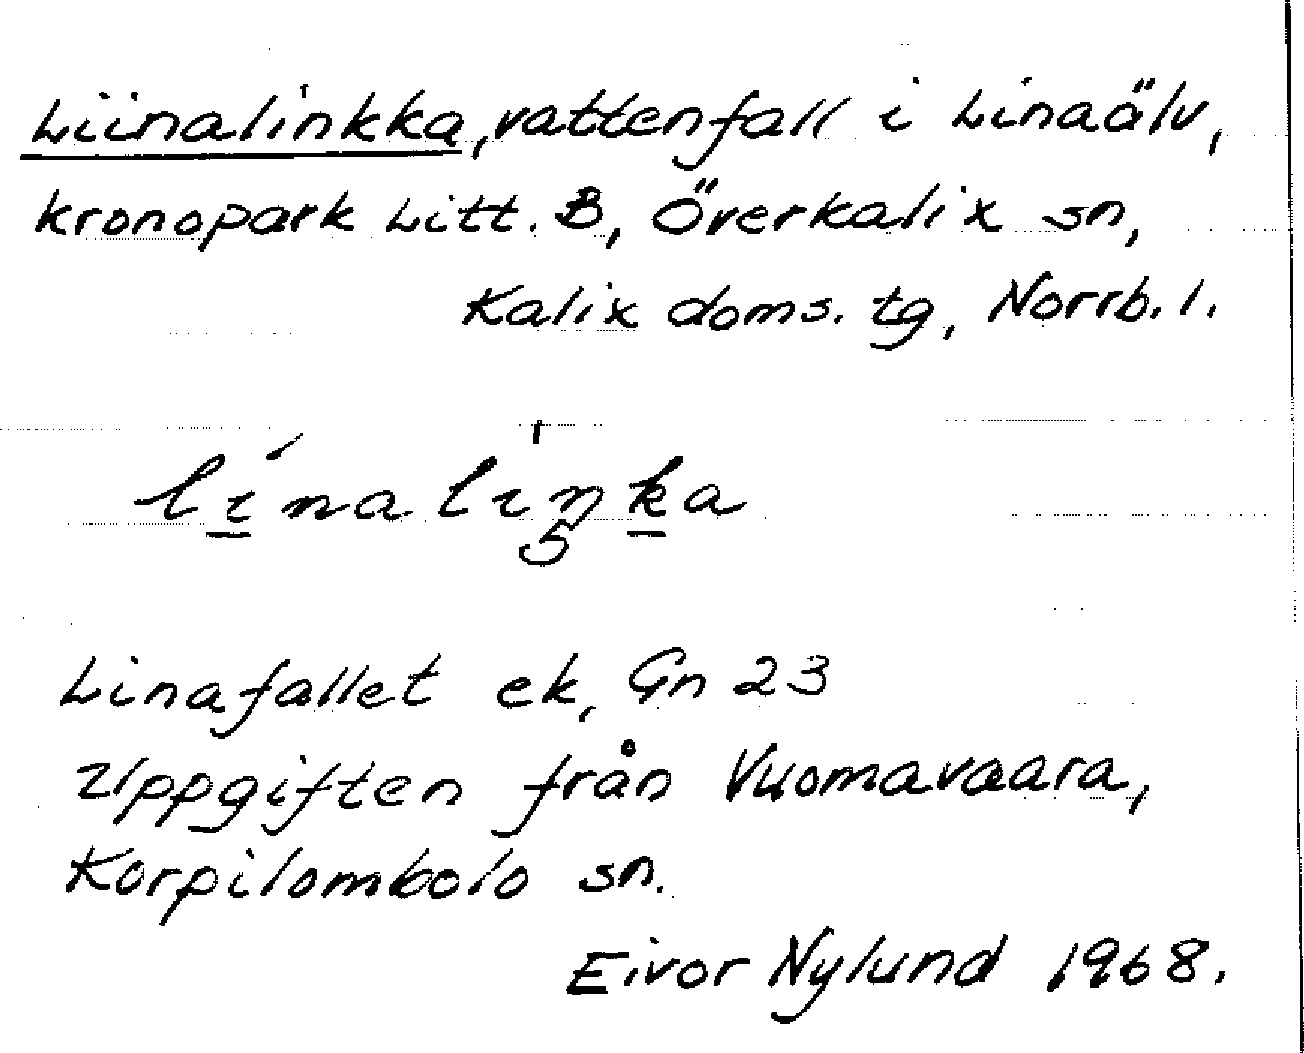 Liinalinkka, vattenfall i Linaälv,
kronopark Litt. B, Överkalix sn,
Kalix doms. tg, Norrb. l.
línalinka
5
Linafallet ek, Gn 23
Uppgiften från Vuomavaara,
Korpilombolo sn.
Eivor Nylund 1968.